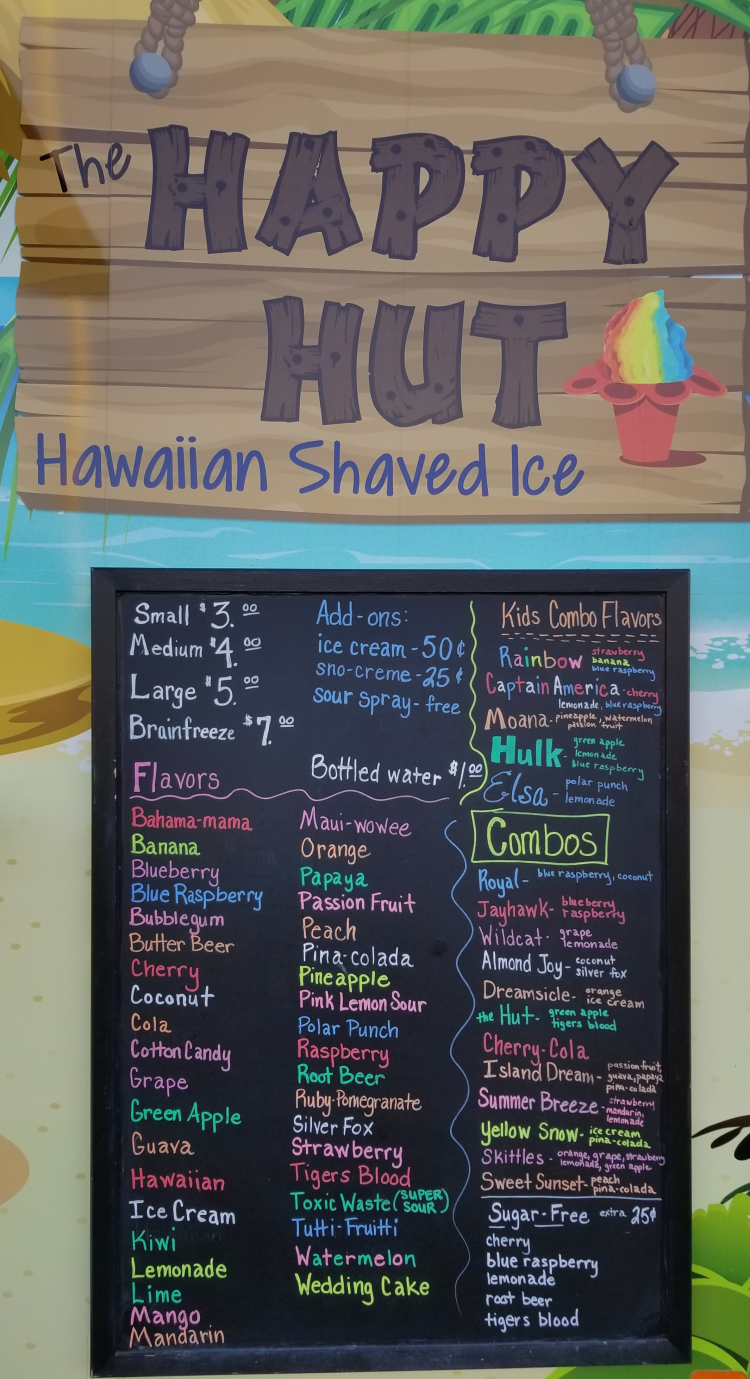 The HAPPY
HUT
Hawaiian Shaved Ice
Small $3.00
Medium $4.00
Large $5.00
Brainfreeze $7.00
Add-ons:
ice cream - 50¢
sno-creme - 25¢
sour spray - free
Bottled water $1.00
Flavors
Bahama-mama
Banana
Blueberry
Blue Raspberry
Bubblegum
Butter Beer
Cherry
Coconut
Cola
Cotton Candy
Grape
Green Apple
Guava
Hawaiian
Ice Cream
Kiwi
Lemonade
Lime
Mango
Mandarin
Maui-wowee
Orange
Papaya
Passion Fruit
Peach
Pina-colada
Pineapple
Pink Lemon Sour
Polar Punch
Raspberry
Root Beer
Ruby-Pomegranate
Silver Fox
Strawberry
Tigers Blood
Toxic Waste (SUPER
SOUR)
Tutti-Fruitti
Watermelon
Wedding Cake
Kids Combo Flavors
Rainbow strawberry
banana
blue raspberry
Captain America - cherry
lemonade, blue raspberry
Moana - pineapple, watermelon
passion fruit
Hulk - green apple
lemonade
blue raspberry
Elsa - polar punch
lemonade
Combos
Royal - blue raspberry, coconut
Jayhawk - blueberry
raspberry
Wildcat - grape
lemonade
Almond Joy - coconut
silver fox
Dreamsicle - orange
ice cream
the Hut - green apple
tigers blood
Cherry-Cola
Island Dream - passion fruit,
guava, papaya
pina-colada
Summer Breeze - strawberry
mandarin,
lemonade
Yellow Snow - ice cream
pina-colada
Skittles - orange, grape, strawberry
lemonade, green apple
Sweet Sunset - peach
pina-colada
Sugar-Free extra 25¢
cherry
blue raspberry
lemonade
root beer
tigers blood